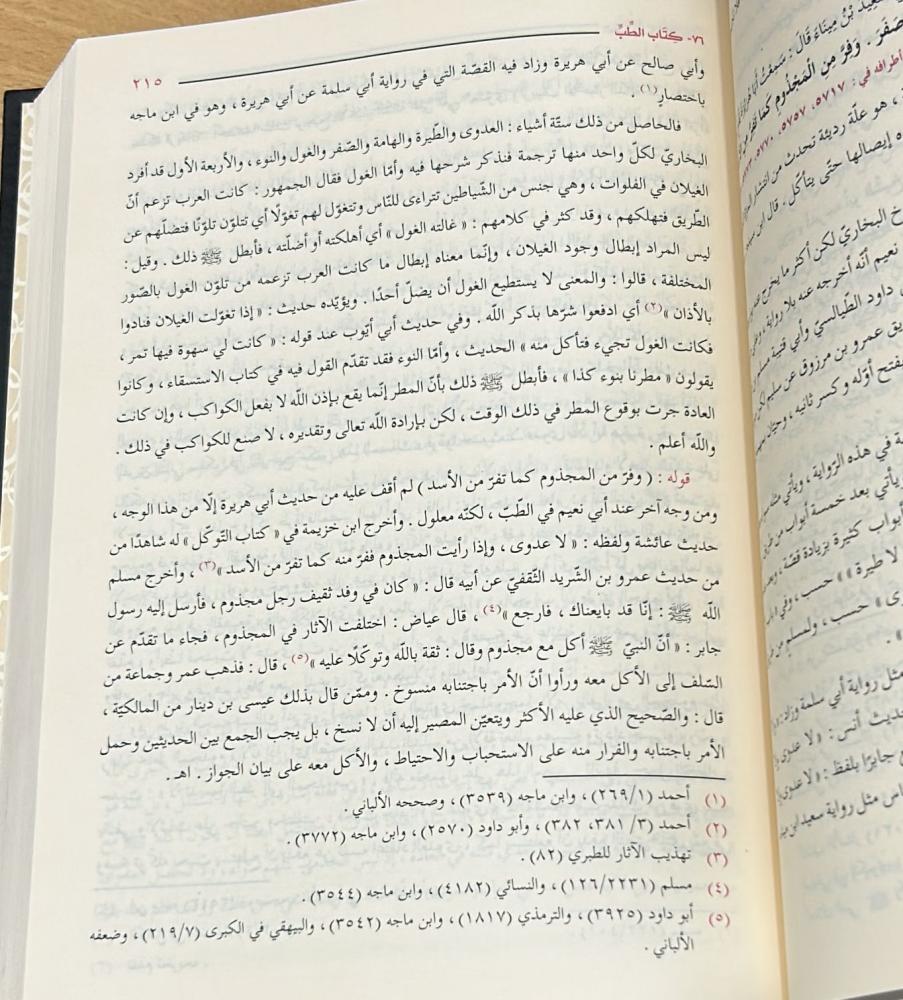 ٧٦- كِتَاب الطِّبِّ
٢١٥
وأبي صالح عن أبي هريرة وزاد فيه القصّة التي في رواية أبي سلمة عن أبي هريرة ، وهو في ابن ماجه
باختصارٍ(١).
فالحاصل من ذلك ستّة أشياء : العدوى والطّيرة والهامة والصّفر والغول والنوء ، والأربعة الأول قد أفرد
البخاريّ لكلّ واحد منها ترجمة فنذكر شرحها فيه وأمّا الغول فقال الجمهور : كانت العرب تزعم أنّ
الغيلان في الفلوات ، وهي جنس من الشّياطين تتراءى للنّاس وتتغوّل لهم تغوّلًا أي تتلوّن تلوّنًا فتضلّهم عن
الطّريق فتهلكهم ، وقد كثر في كلامهم : « غالته الغول » أي أهلكته أو أضلّته ، فأبطل ﷺ ذلك . وقيل :
ليس المراد إبطال وجود الغيلان ، وإنّما معناه إبطال ما كانت العرب تزعمه من تلوّن الغول بالصّور
المختلفة ، قالوا : والمعنى لا يستطيع الغول أن يضلّ أحدًا . ويؤيّده حديث : « إذا تغوّلت الغيلان فنادوا
بالأذان »(٢) أي ادفعوا شرّها بذكر الله . وفي حديث أبي أيّوب عند قوله : « كانت لي سهوة فيها تمر ،
فكانت الغول تجيء فتأكل منه » الحديث ، وأمّا النوء فقد تقدّم القول فيه في كتاب الاستسقاء ، وكانوا
يقولون « مطرنا بنوء كذا » ، فأبطل ﷺ ذلك بأنّ المطر إنّما يقع بإذن الله لا بفعل الكواكب ، وإن كانت
العادة جرت بوقوع المطر في ذلك الوقت ، لكن بإرادة الله تعالى وتقديره ، لا صنع للكواكب في ذلك .
والله أعلم .
قوله : ( وفرّ من المجذوم كما تفرّ من الأسد ) لم أقف عليه من حديث أبي هريرة إلّا من هذا الوجه ،
ومن وجه آخر عند أبي نعيم في الطّبّ ، لكنّه معلول . وأخرج ابن خزيمة في « كتاب التّوكّل » له شاهدًا من
حديث عائشة ولفظه : « لا عدوى ، وإذا رأيت المجذوم ففرّ منه كما تفرّ من الأسد »(٣) ، وأخرج مسلم
من حديث عمرو بن الشّريد الثّقفيّ عن أبيه قال : « كان في وفد ثقيف رجل مجذوم ، فأرسل إليه رسول
الله ﷺ : إنّا قد بايعناك ، فارجع »(٤) ، قال عياض : اختلفت الآثار في المجذوم ، فجاء ما تقدّم عن
جابر : « أنّ النبيّ ﷺ أكل مع مجذوم وقال : ثقة بالله وتوكّلًا عليه »(٥) ، قال : فذهب عمر وجماعة من
السّلف إلى الأكل معه ورأوا أنّ الأمر باجتنابه منسوخ . وممّن قال بذلك عيسى بن دينار من المالكيّة ،
قال : والصّحيح الذي عليه الأكثر ويتعيّن المصير إليه أن لا نسخ ، بل يجب الجمع بين الحديثين وحمل
الأمر باجتنابه والفرار منه على الاستحباب والاحتياط ، والأكل معه على بيان الجواز . اهـ .
(١) أحمد (١/ ٢٦٩)، وابن ماجه (٣٥٣٩)، وصححه الألباني .
(٢) أحمد (٣/ ٣٨١، ٣٨٢)، وأبو داود (٢٥٧٠)، وابن ماجه (٣٧٧٢).
(٣) تهذيب الآثار للطبري (٨٢) .
(٤) مسلم (١٢٦/٢٢٣١)، والنسائي (٤١٨٢)، وابن ماجه (٣٥٤٤) .
(٥) أبو داود (٣٩٢٥)، والترمذي (١٨١٧)، وابن ماجه (٣٥٤٢)، والبيهقي في الكبرى (٢١٩/٧)، وضعفه
الألباني .
بْنُ مِينَاءَ قَالَ : سَمِعْتُ
صَفَرَ . وَفِرَّ مِنَ الْمَجْذُومِ كَمَا
أطرافه في : ٥٧١٧، ٥٧٥٧، ٥٧٧٠
هو علّة رديئة تحدث من انتشار
إيصالها حتّى يتأكّل . قال ابن
البخاريّ لكن أكثر ما يخرج
نعيم أنّه أخرجه عنه بلا رواية
داود الطّيالسيّ وأبي قتيبة
عمرو بن مرزوق عن سليم لكن
أوّله وكسر ثانيه ، وحيّان
في هذه الرّواية ، ويأتي
يأتي بعد خمسة أبواب من
أبواب كثيرة بزيادة قصّة
لا طيرة » حسب ، وفي
» حسب ، ولمسلم من
مثل رواية أبي سلمة وزاد
حديث أنس : « لا عدوى
جابرًا بلفظ : « لا
مثل رواية سعيد ابن